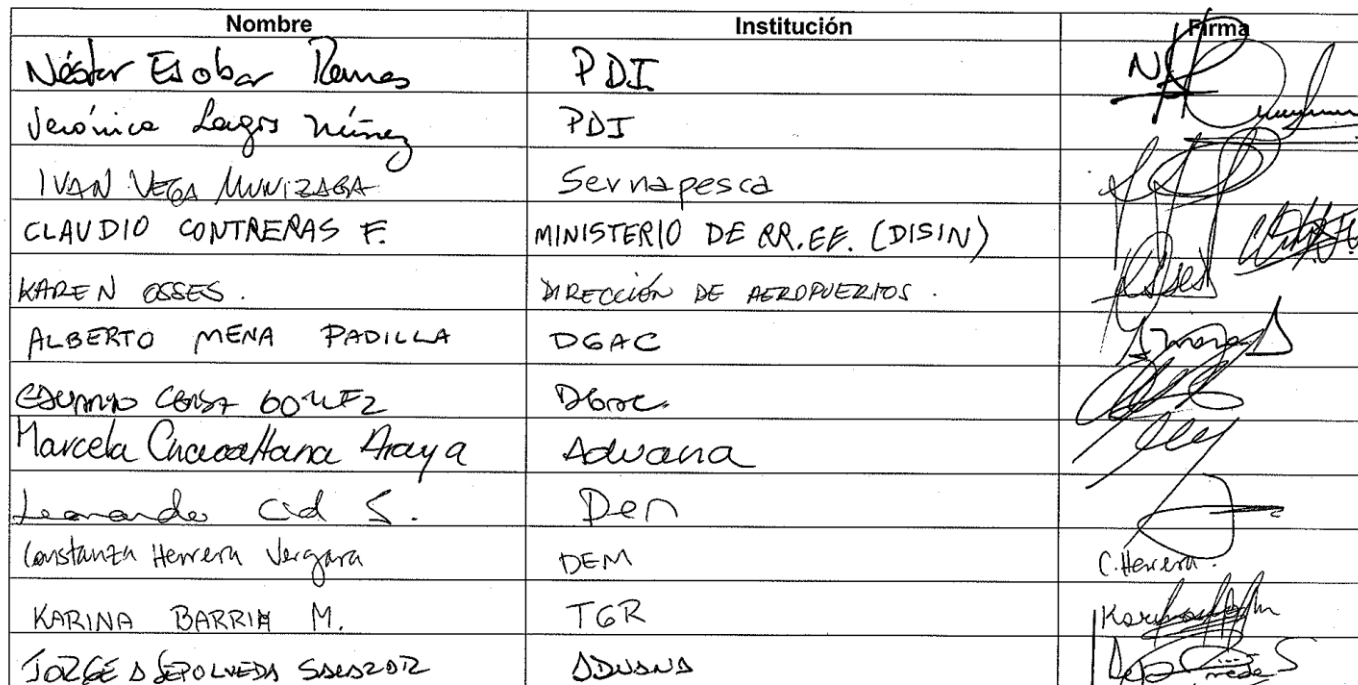 Nombre Institución Firma
Néstor Escobar Ramos PDI
Verónica Lagos Núñez PDI
IVAN VEGA MUNIZAGA Sernapesca
CLAUDIO CONTRERAS F. MINISTERIO DE RR.EE. (DISIN)
KAREN OSSES. DIRECCIÓN DE AEROPUERTOS.
ALBERTO MENA PADILLA DGAC
DGAC.
Marcela Araya Aduana
Leonardo Cid S. Dem
Constanza Herrera Vergara DEM C. Herrera.
KARINA BARRIA M. TGR
JORGE A SEPOLVEDA SALAZAR ADUANA